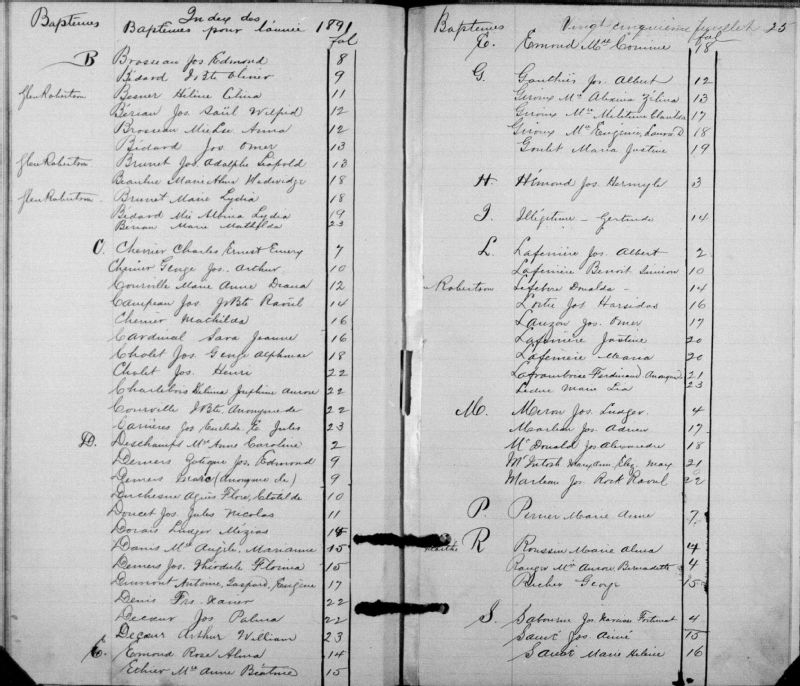 Baptêmes Index des Baptêmes pour l'année 1891
fol
B Brosseau Jos Edmond 8
Bédard J Bte Oliver 9
Glen Robertson Besner Hélène Célina 11
Bériau Jos. Saül Wilfrid 12
Brosseau Anna 12
Bédard Jos Omer 13
Glen Robertson Brunet Jos Adolphe Léopold 13
Marie 18
Glen Robertson Brunet Marie Lydia 18
Bédard Mie Albina Lydia 19
Bériau Marie Mathilda 23
C. Cherrier Charles Ernest Emery 7
Chénier George Jos. Arthur 10
Courville Marie Anne Diana 12
Campeau Jos J Bte Raoûl 14
Chénier Mathilda 16
Cardinal Sara Jeanne 16
Cholet Jos. George Alphonse 18
Cholet Jos. Henri 22
Charlebois Delima Joséphine Aurore 22
Courville J Bte, Anonyme de 22
Carrières Jos Euclide E. Jules 23
D. Deschamps Mie Anne Caroline 2
Demers Zotique Jos. Edmond 9
Demers Marc (Anonyme de) 9
Duchesne Agnès Flore, Clotilde 10
Doucet Jos. Jules Nicolas 11
Dorais Ludger Mézias 15
Daoust Mie Angèle, Marianne 15
Demers Jos. Théodule Florina 15
Dumont Antoine, Gaspard, Eugène 17
Denis Frs. Xavier 22
Decoeur Jos Palma 22
Decoeur Arthur William 23
E. Emond Rose Alma 14
Ethier Mie Anne Béatrice 15
Baptêmes Vingt cinquième feuillet 25
fol
E. Emond Mie Corinne 18
G. Gauthier Jos. Albert 12
Giroux Mie Alexina Zélina 13
Giroux Mie 17
Giroux Mie Eugénie, Laura D. 18
Goulet Maria Justine 19
H. Hémond Jos. 3
I. Illégitime - Gertrude 14
L. Lafernière Jos. Albert 2
Lafernière Benoit Siméon 10
Robertson Lefebvre Donalda - 14
Lortie Jos 16
Lauzon Jos. Omer 17
Lafernière Justine 20
Lafernière Maria 20
Laframboise Ferdinand Anonyme 21
Leduc Marie Lia 23
M. Miron Jos. Ludger. 4
Marleau Jos. Adrien 17
Mc Donald Jos Alexandre 18
Mc Intosh Mary Ann, Eliz. Mary 21
Marleau Jos. Rock Raoul 22
P. Perrier Marie Anne 7
R Roussin Marie Alma 4
Ranger Mie Aurore Bernadette 4
Richer George 15
S. Sabourin Jos. Narcisse Fortunat 4
Sauvé Jos. Aimé 15
Sauvé Marie Hélène 16